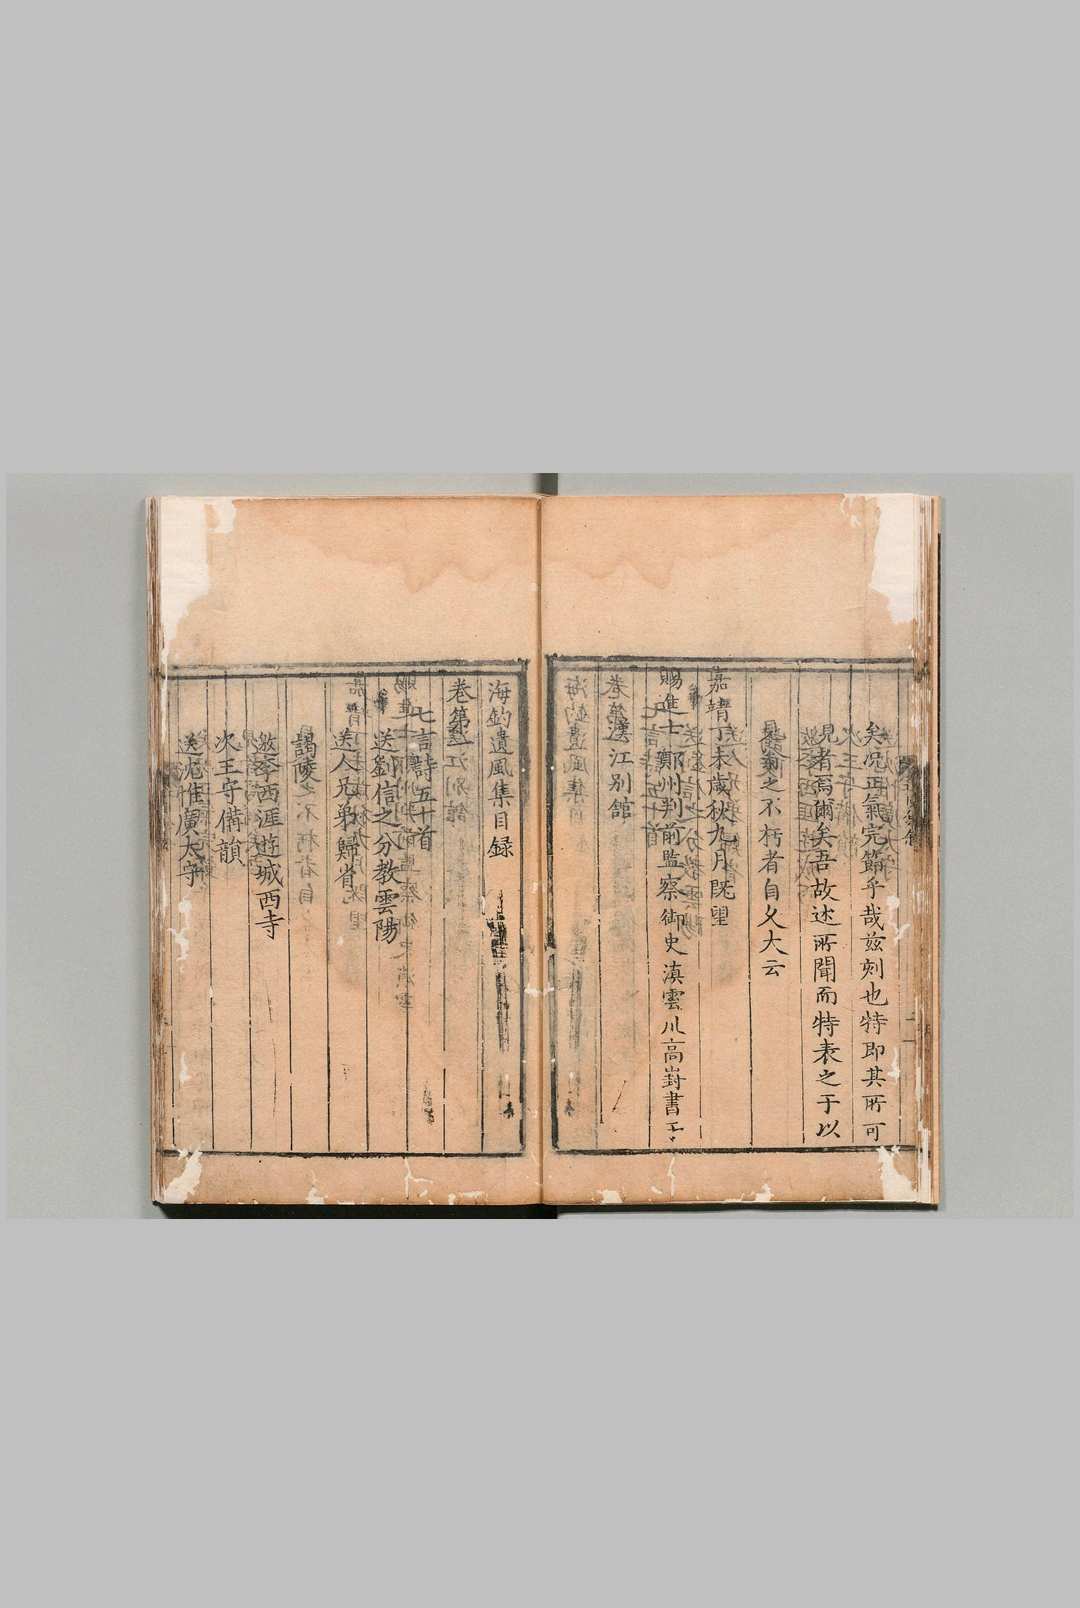 矣况正氣完節乎哉兹刻也特即其所可
見者焉爾矣吾故述所聞而特表之于以
翁之不朽者自久大云
嘉靖丁未歲秋九月既望
賜進士鄭州判前監察御史滇雲川高對書于
漢江別舘
海釣遺風集目録
卷第一
七言詩五十首
送劉信之分教雲陽
送人兄弟歸省
謁陵
邀李西涯遊城西寺
次王守備韻
送沈惟廣太守